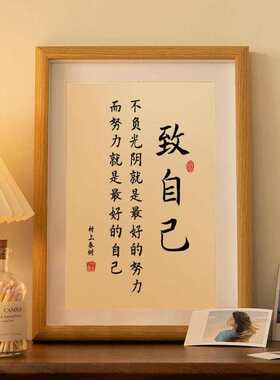 致自己
不负光阴就是最好的努力
而努力就是最好的自己
村上春树
CANDLE